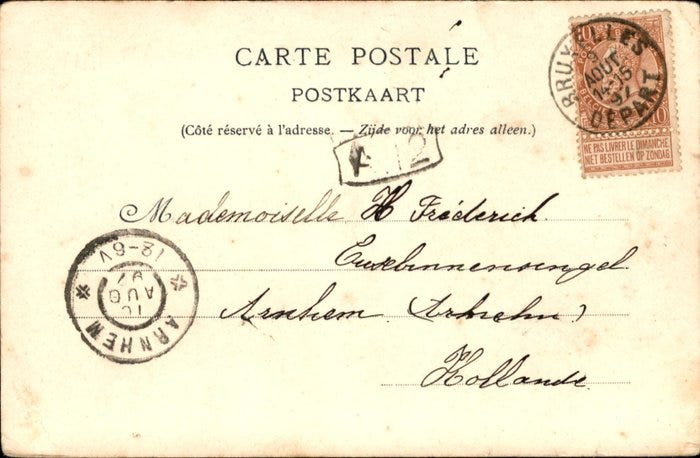 CARTE POSTALE
POSTKAART
(Côté réservé à l'adresse. — Zijde voor het adres alleen.)
BRUXELLES
AOUT
DEPART
10 10
NE PAS LIVRER LE DIMANCHE
NIET BESTELLEN OP ZONDAG
12
Mademoiselle H Fréderich.
Eusebinnensingel
Arnhem (Arnhem)
Hollande.
12-6V
AUG
97
ARNHEM